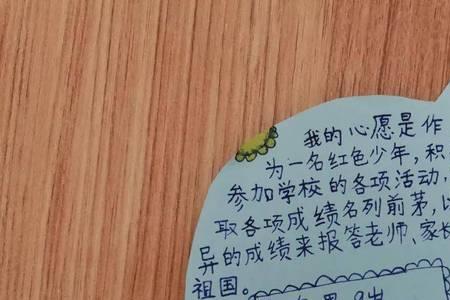 我的心愿是作
为一名红色少年,积
参加学校的各项活动,
取各项成绩名列前茅,以
异的成绩来报答老师、家长
祖国。